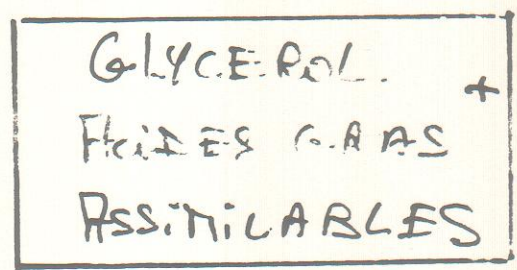 GLYCEROL +
ACIDES GRAS
ASSIMILABLES